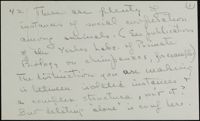 42. There are plenty of
instances of social cooperation
among animals. (See publications
of the Yerkes Labs. of Primate
Biology on chimpanzees, for example)
The distinction you are making
is between isolated instances &
a complex structure, isn't it?
But "letting alone" is